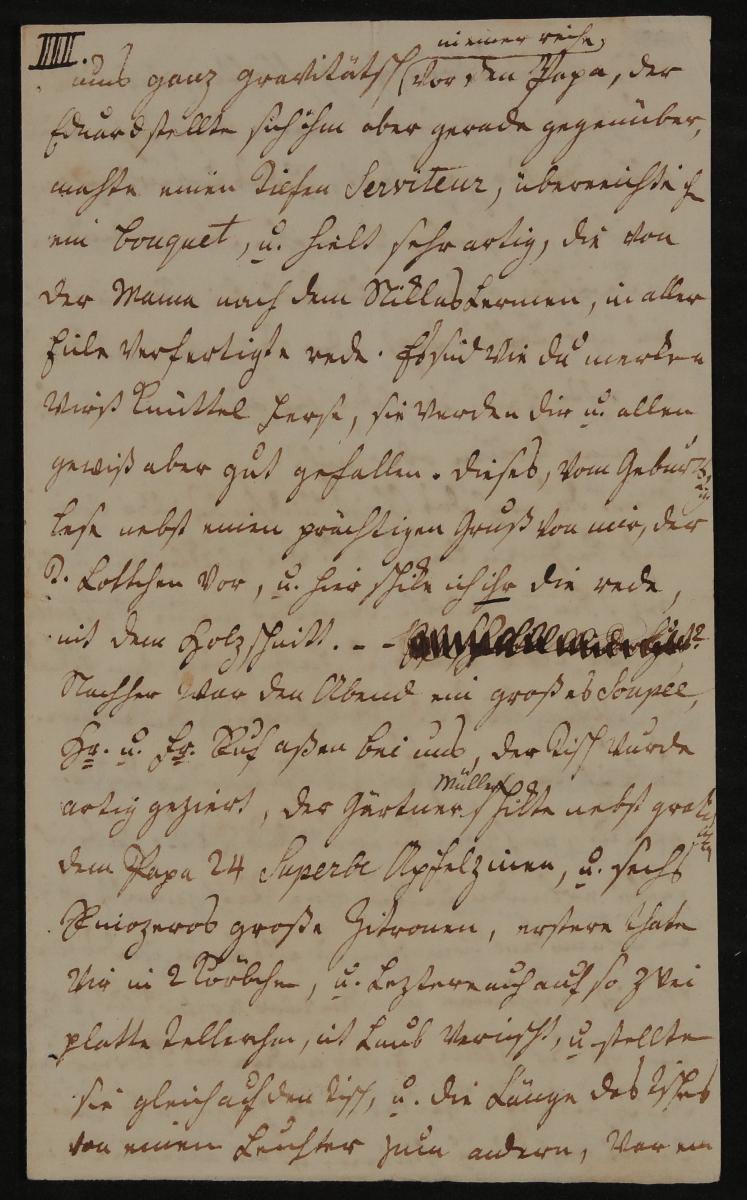 IIIII.
in einer reihe,
uns ganz gravitätsch (vor den Papa, der
Eduard stellte sich ihm aber gerade gegenüber,
machte einen Tiefen Serviteur, überreichte ihm
ein bouquet, u. hielt sehr artig, die von
der Mama nach dem Niklas Lermen, in aller
Eile Verfertigte rede. Es sind wie du merken
wirst Knüttel Ferse, sie werden dir u. allen
gewiß aber gut gefallen. dieses, vom Geburtstag
lese nebst einen prächtigen Gruß von mir, der
Lottchen vor, u. hier schike ich ihr die rede,
mit dem Holzschnitt. - -
Nachher war den Abend ein großes Soupée,
Hr. u. Fr. Ruf aßen bei uns, der Tisch wurde
artig geziert, der Gärtner Müller schikte nebst
dem Papa 24 Superbe Apfelzinen, u. sechs
große Zitronen, erstere thate
wir in 2 Körbchen, u. Leztere auch auf so zwei
platte Tellerchen, mit Laub vermischt, u. stellte
sie gleich auf den Tisch, u. die Länge des Tisches
von einem Leuchter zum andern, war ein